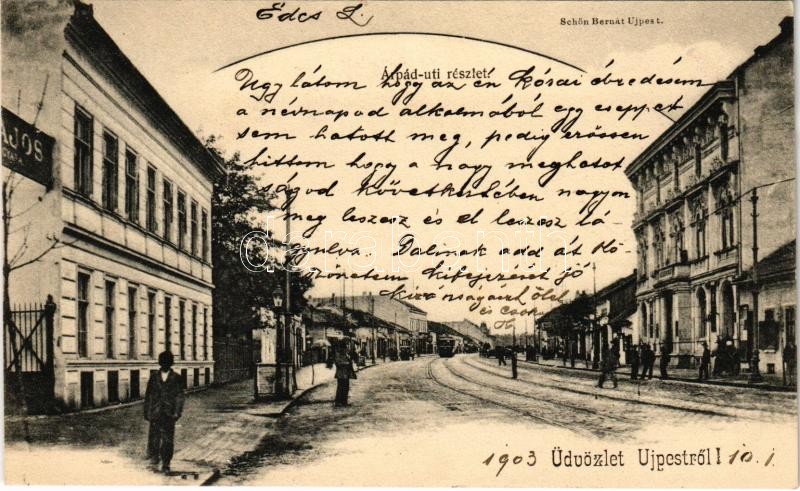 Édes L.
Schön Bernát Ujpest.
Árpád-uti részlet.
Ugy látom hogy az én kósai ébredésem
a névnapod alkalmából egy cseppet
sem hatott meg, pedig erőssen
hittem hogy a nagy meghatot
ságod következtében nagyon
meg leszesz és el leszesz lá-
gyulva. Dalinak add át kö-
szönetem kifejezését jó
kivánságaiért ölel
és csók
AJOS
1903 Üdvözlet Ujpestről! 10.1